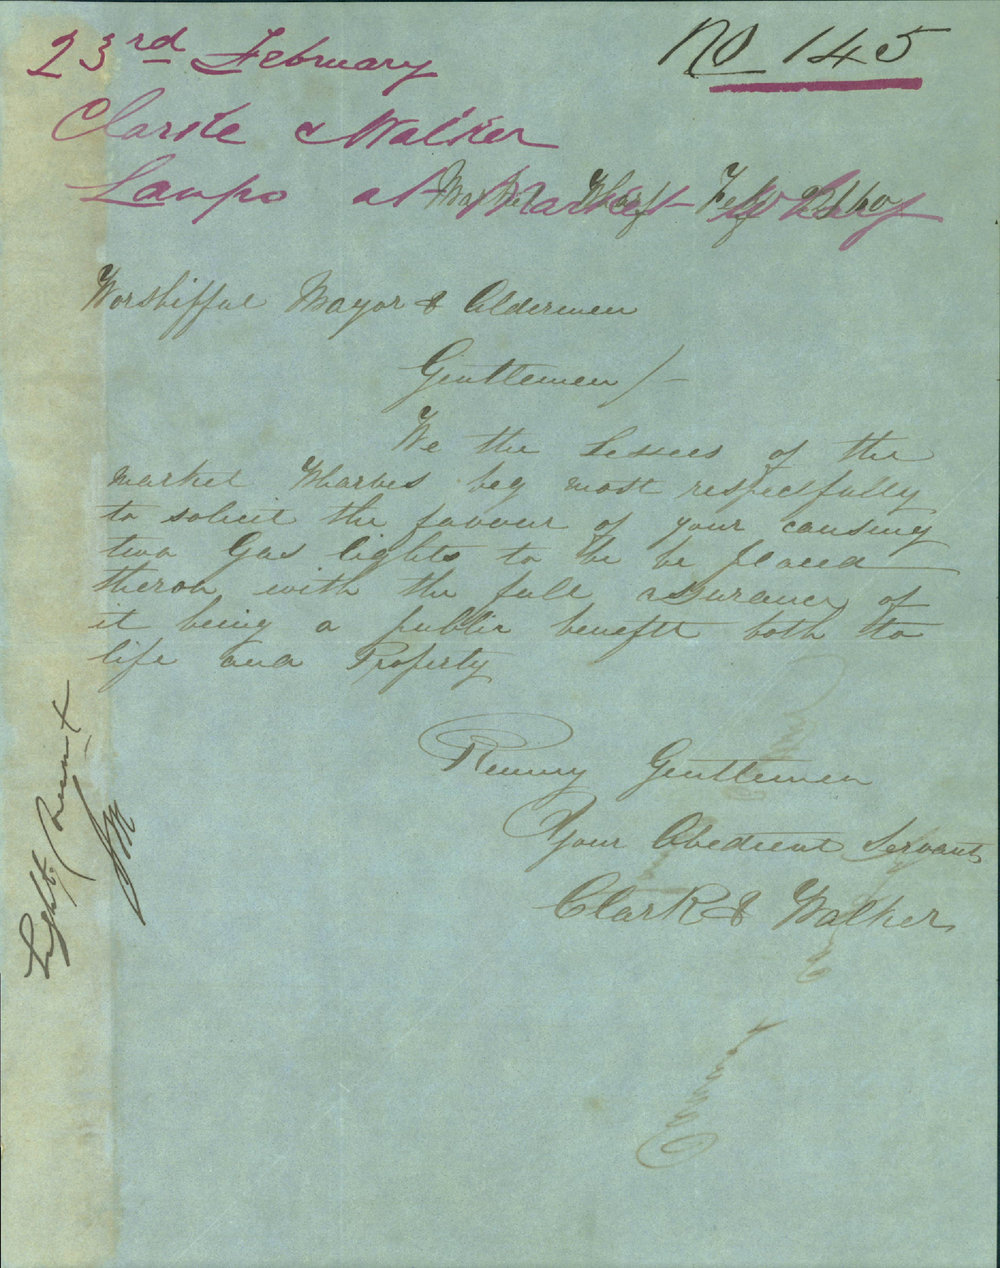 23rd February
No 145
Clarke & Walker
Lamps at Market Wharf
Market Wharf Feby 22/60
Worshipful Mayor & Aldermen
Gentlemen/-
We the Lessees of the
Market Wharves beg most respectfully
to solicit the favour of your causing
two Gas lights to be be placed
theron with the full assurance of
it being a public benefit both to
life and Property
Gentlemen
Your Obedient Servants
Clark & Walker
Light